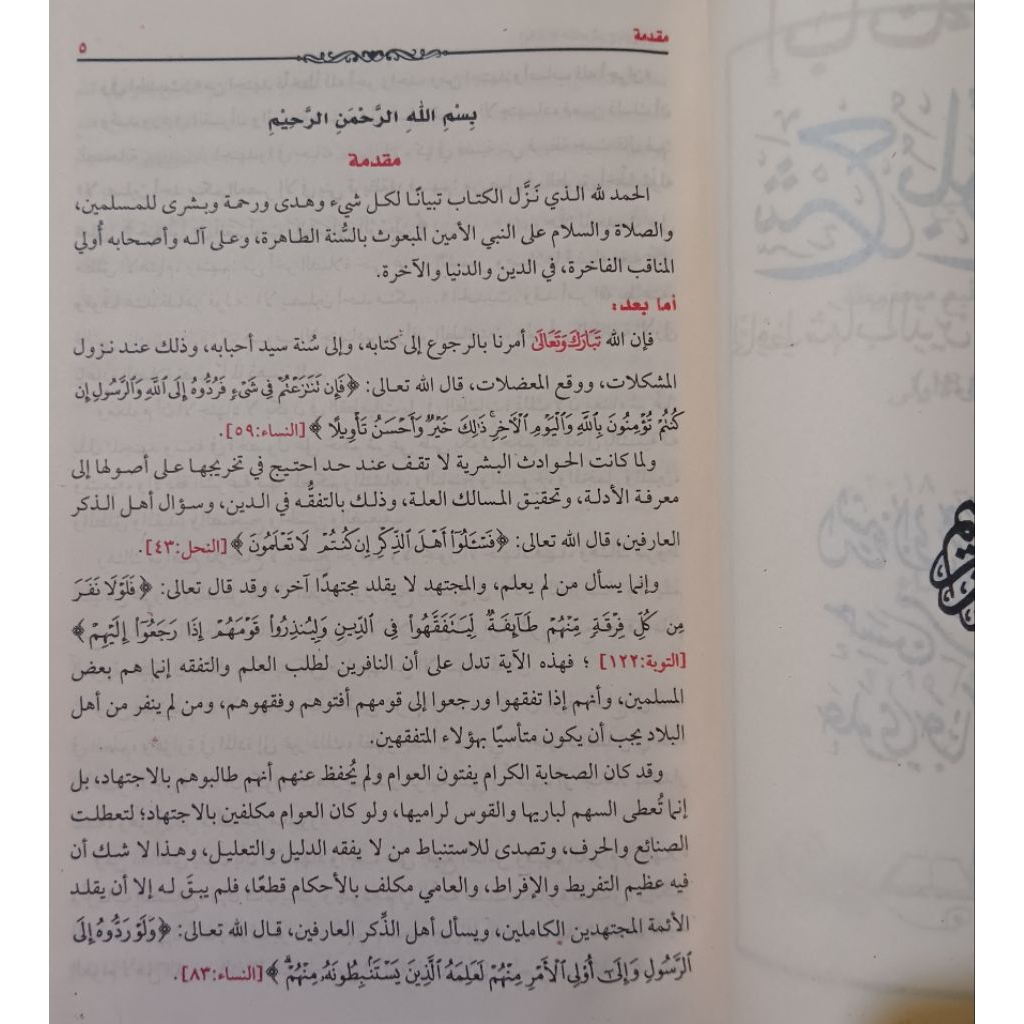 مقدمة
٥
بِسْمِ اللهِ الرَّحْمَنِ الرَّحِيْمِ
مقدمة
الحمد لله الذي نَزَّل الكتاب تبيانًا لكل شيء وهدى ورحمة وبشرى للمسلمين،
والصلاة والسلام على النبي الأمين المبعوث بالسُّنة الطاهرة، وعلى آله وأصحابه أُولي
المناقب الفاخرة، في الدين والدنيا والآخرة.
أما بعد:
فإن الله تَبَارَكَ وَتَعَالَىٰ أمرنا بالرجوع إلى كتابه، وإلى سُنة سيد أحبابه، وذلك عند نزول
المشكلات، ووقع المعضلات، قال الله تعالى: ﴿فَإِن تَنَٰزَعۡتُمۡ فِي شَيۡءٖ فَرُدُّوهُ إِلَى ٱللَّهِ وَٱلرَّسُولِ إِن
كُنتُمۡ تُؤۡمِنُونَ بِٱللَّهِ وَٱلۡيَوۡمِ ٱلۡأٓخِرِۚ ذَٰلِكَ خَيۡرٞ وَأَحۡسَنُ تَأۡوِيلًا﴾ [النساء:٥٩].
ولما كانت الحوادث البشرية لا تقف عند حد احتيج في تخريجها على أصولها إلى
معرفة الأدلة، وتحقيق المسالك العلة، وذلك بالتفقُّه في الدين، وسؤال أهل الذكر
العارفين، قال الله تعالى: ﴿فَسۡـَٔلُوٓاْ أَهۡلَ ٱلذِّكۡرِ إِن كُنتُمۡ لَا تَعۡلَمُونَ﴾ [النحل:٤٣].
وإنما يسأل من لم يعلم، والمجتهد لا يقلد مجتهدًا آخر، وقد قال تعالى: ﴿فَلَوۡلَا نَفَرَ
مِن كُلِّ فِرۡقَةٖ مِّنۡهُمۡ طَآئِفَةٞ لِّيَتَفَقَّهُواْ فِي ٱلدِّينِ وَلِيُنذِرُواْ قَوۡمَهُمۡ إِذَا رَجَعُوٓاْ إِلَيۡهِمۡ﴾
[التوبة:١٢٢] ؛ فهذه الآية تدل على أن النافرين لطلب العلم والتفقه إنما هم بعض
المسلمين، وأنهم إذا تفقهوا ورجعوا إلى قومهم أفتوهم وفقهوهم، ومن لم ينفر من أهل
البلاد يجب أن يكون متأسيًا بهؤلاء المتفقهين.
وقد كان الصحابة الكرام يفتون العوام ولم يُحفظ عنهم أنهم طالبوهم بالاجتهاد، بل
إنما تُعطى السهم لباريها والقوس لراميها، ولو كان العوام مكلفين بالاجتهاد؛ لتعطلت
الصنائع والحرف، وتصدى للاستنباط من لا يفقه الدليل والتعليل، وهذا لا شك أن
فيه عظيم التفريط والإفراط، والعامي مكلف بالأحكام قطعًا، فلم يبقَ له إلا أن يقلد
الأئمة المجتهدين الكاملين، ويسأل أهل الذِّكر العارفين، قال الله تعالى: ﴿وَلَوۡ رَدُّوهُ إِلَى
ٱلرَّسُولِ وَإِلَىٰٓ أُوْلِي ٱلۡأَمۡرِ مِنۡهُمۡ لَعَلِمَهُ ٱلَّذِينَ يَسۡتَنۢبِطُونَهُۥ مِنۡهُمۡۗ﴾ [النساء:٨٣].